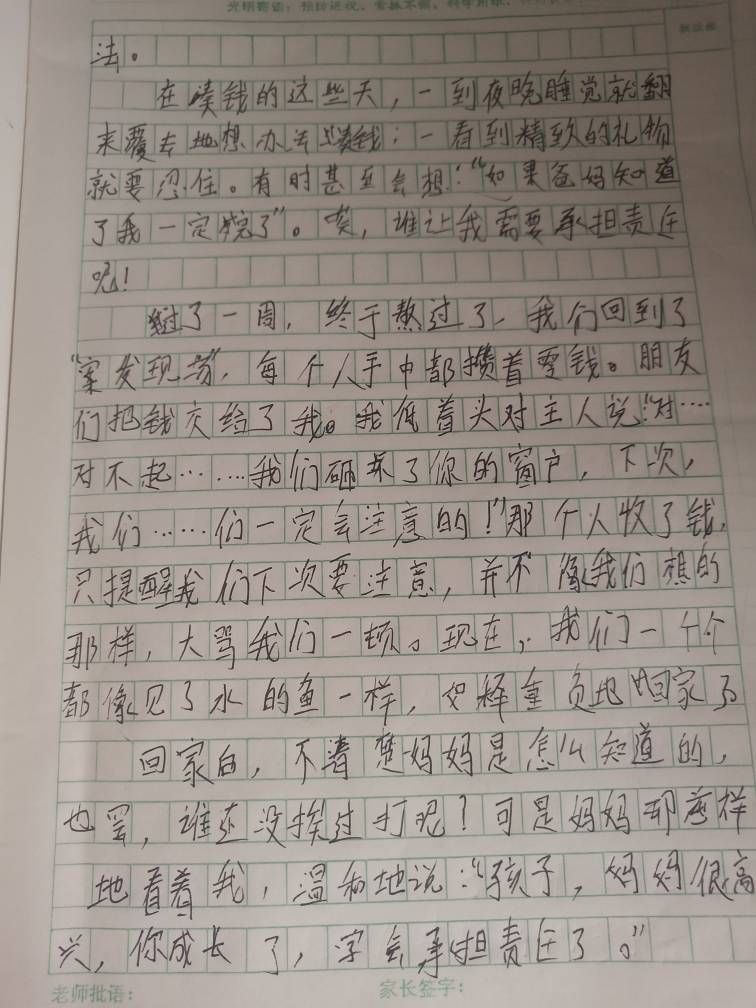 光明寄语：预防近视、常抓不懈、科学用眼、
法。
在凑钱的这些天，一到夜晚睡觉就翻
来覆去地想办法赚钱；一看到精致的礼物
就要忍住。有时甚至会想：“如果爸妈知道
了我一定完了”。唉，谁让我需要承担责任
呢！
过了一周，终于熬过了，我们回到了
“案发现场”，每个人手中都攒着零钱。朋友
们把钱交给了我。我低着头对主人说：“对……
对不起……我们砸坏了你的窗户，下次，
我们……们一定会注意的！”那个人收了钱，
只提醒我们下次要注意，并不像我们想的
那样，大骂我们一顿。现在，我们一个个
都像见了水的鱼一样，如释重负地回家了
回家的，不清楚妈妈是怎么知道的，
也罢，谁还没挨过打呢？可是妈妈却慈祥
地看着我，温和地说：“孩子，妈妈很高
兴，你成长了，学会承担责任了。”
老师批语： 家长签字：